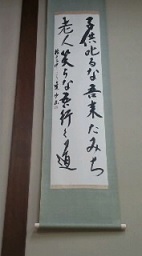 子供叱るな吾来たみち
老人笑うな吾行く道